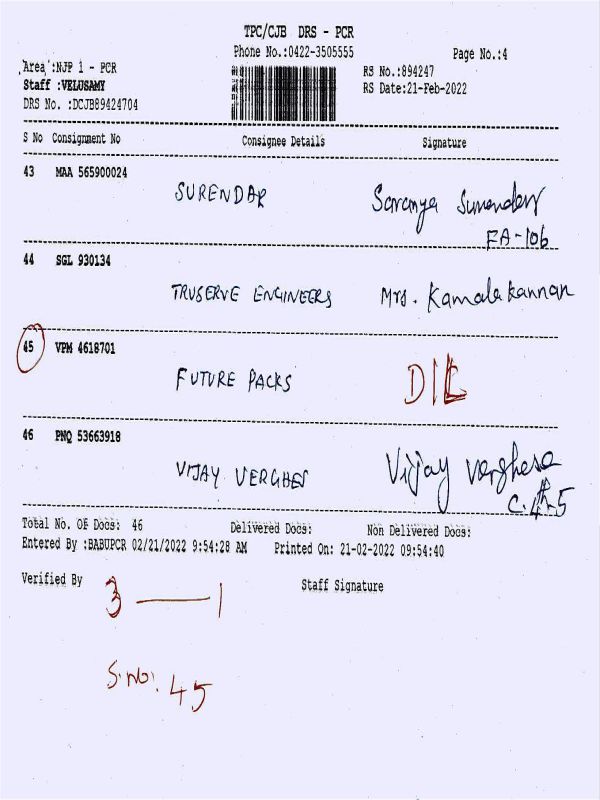 TPC/CJB DRS - PCR
Phone No.:0422-3505555
Page No.:4
Area :NJP 1 - PCR
RS No.:894247
Staff :VELUSAMY
RS Date:21-Feb-2022
DRS No. :DCJB89424704
S No Consignment No Consignee Details Signature
43 MAA 565900024
SURENDAR Saranya Surendar
FA-106
44 SGL 930134
TRUSERVE ENGINEERS Mrs. Kamalakannan
45 VPM 4618701
FUTURE PACKS
46 PNQ 53663918
VIJAY VERGHES Vijay Verghese
Total No. Of Docs: 46 Delivered Docs: Non Delivered Docs:
Entered By :BABUPCR 02/21/2022 9:54:28 AM Printed On: 21-02-2022 09:54:40
Verified By Staff Signature
3 — 1
S.no: 45